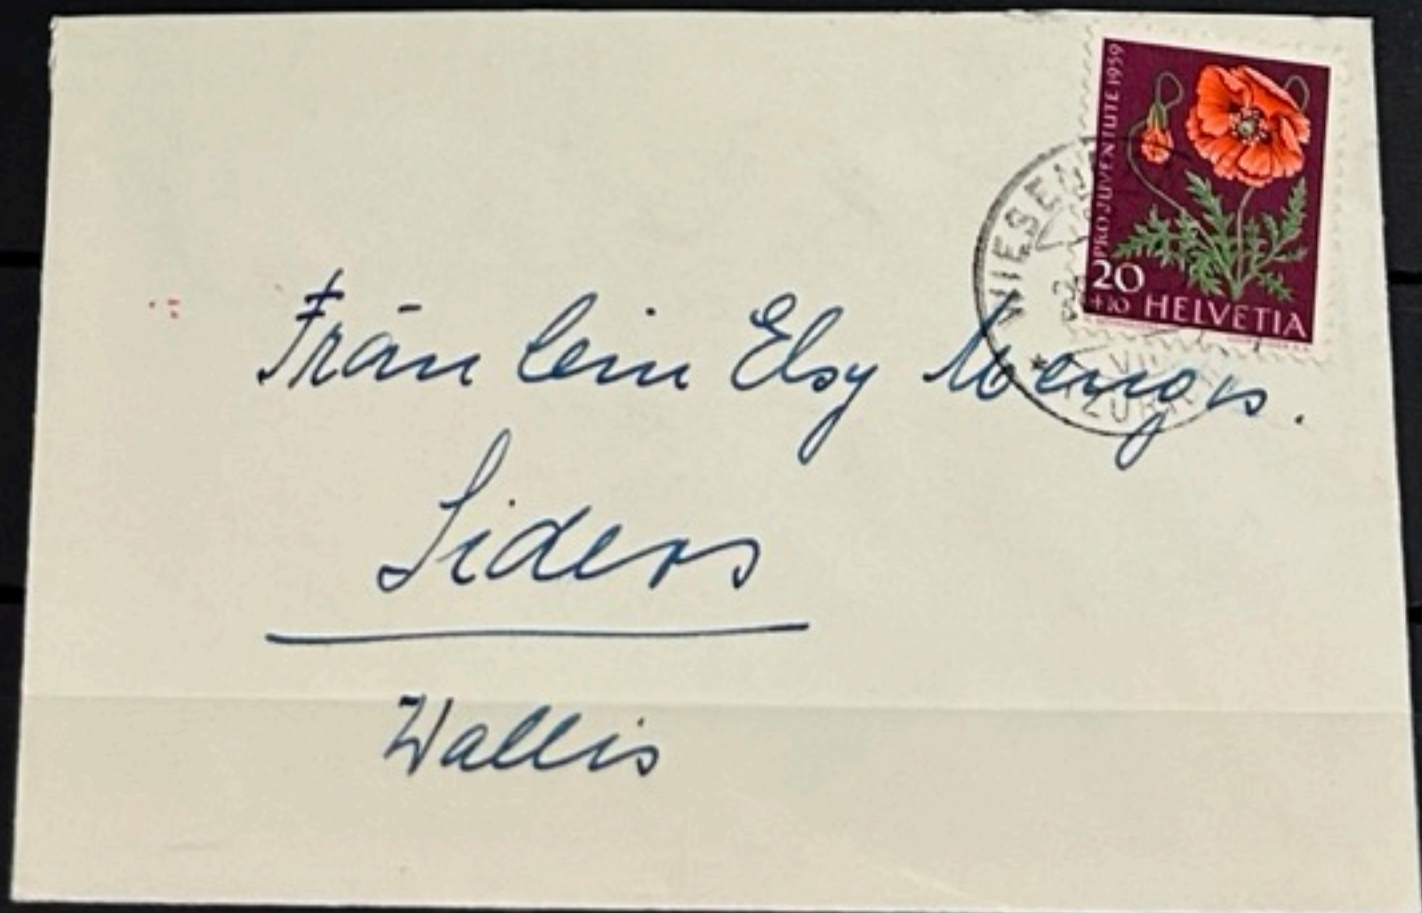 PRO JUVENTUTE 1959
20
+10 HELVETIA
WIESEN
Fräulein Elsy Wenger.
Siders
Wallis